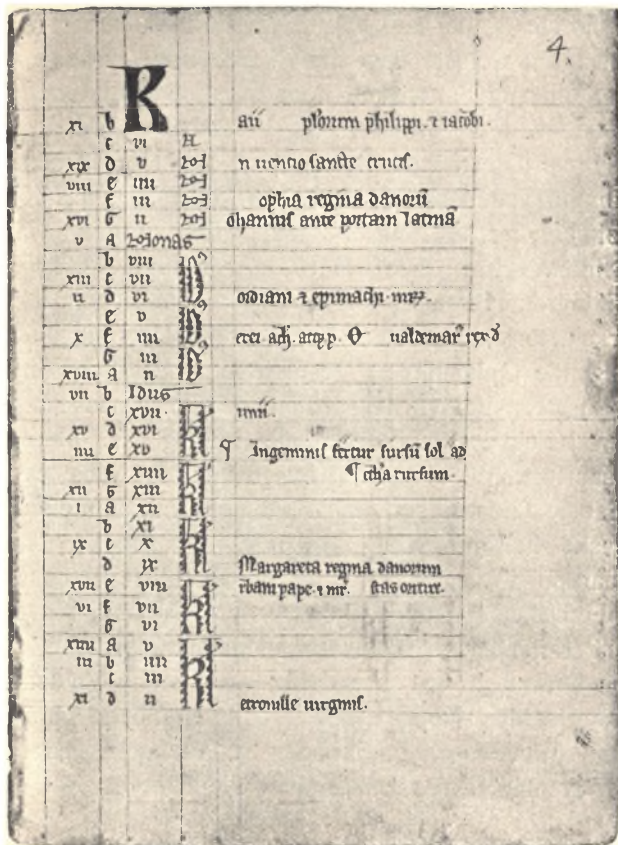 4.
K
xi b aii plorum philippi. ⁊ iacobi.
c vi N
xix d v No n uentio sancte crucis.
viii e iiii No
f iii No ophia regina danorū
xvi G ii No ohannis ante portam latinā
v A Nonas
b viii
xiii c vii
ii d vi ordiani ⁊ epimachi. mr̄.
e v
x f iiii erei. achi. atqz p. O ualdemar rex d
G iii
xviii A ii
vii b Idus
c xvii. iunii.
xv d xvi
iiii e xv ¶ Ingeminis fertur sursū sol ad
f xiiii ¶ rursum.
xii G xiii
i A xii
b xi
ix c x
d ix Margareta regina danorum
xvii e viii rbani pape. ⁊ mr̄. estas oritur.
vi f vii
G vi
xiiii A v
iii b iiii
c iii
xi d ii etronille uirginis.